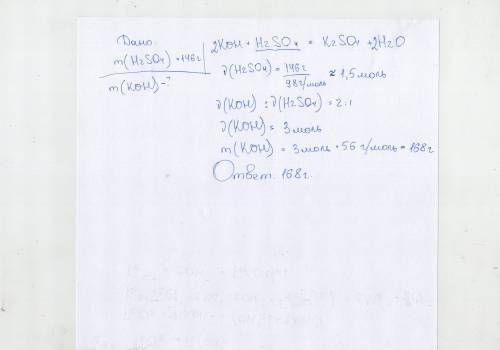 Дано
m(H2SO4) = 146г
m(KOH) - ?
2KOH + H2SO4 = K2SO4 + 2H2O
ν(H2SO4) = 146г / 98г/моль ≈ 1,5 моль
ν(KOH) : ν(H2SO4) = 2:1
ν(KOH) = 3 моль
m(KOH) = 3 моль • 56 г/моль = 168г
Ответ: 168г.